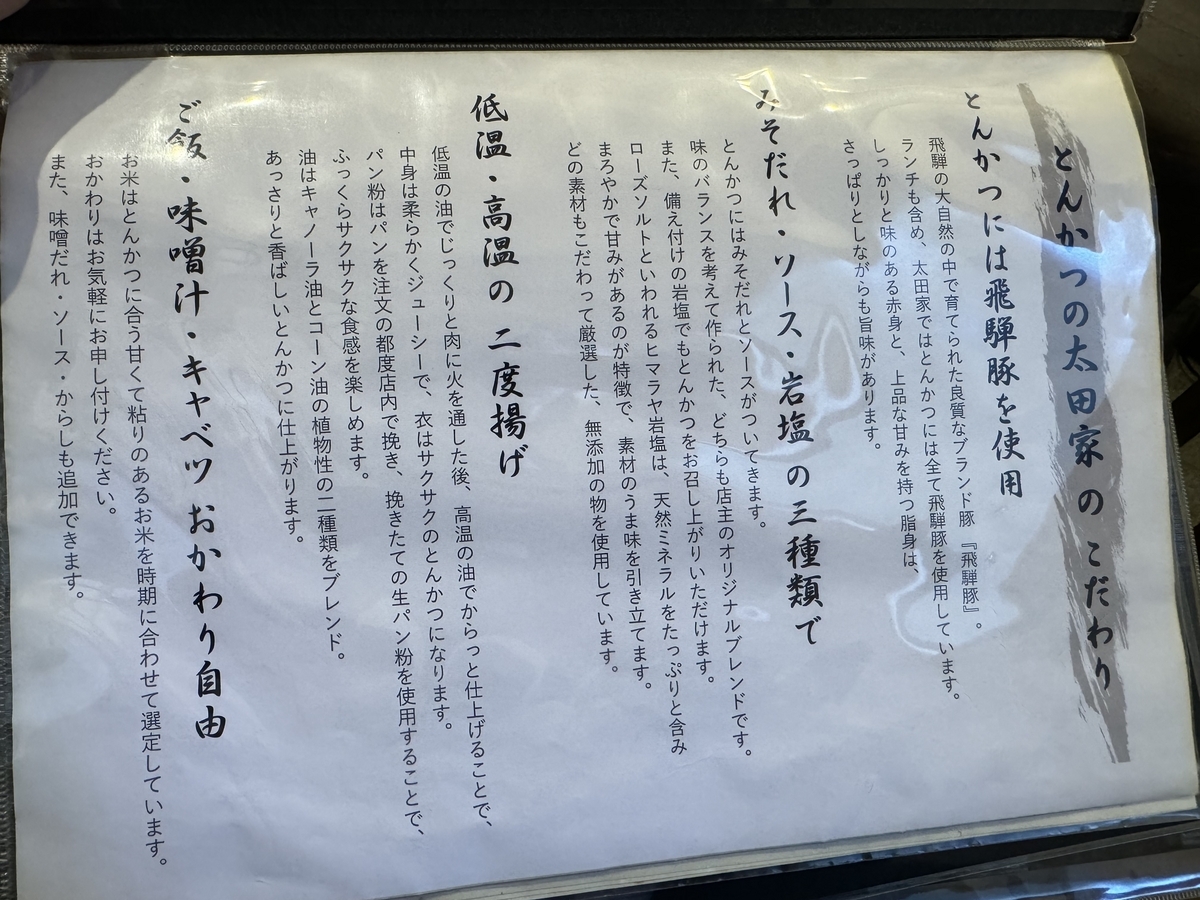 とんかつの太田家のこだわり
とんかつには飛騨豚を使用
飛騨の大自然の中で育てられた良質なブランド豚『飛騨豚』。
ランチも含め、太田家ではとんかつには全て飛騨豚を使用しています。
しっかりと味のある赤身と、上品な甘みを持つ脂身は、
さっぱりとしながらも旨味があります。
みそだれ・ソース・岩塩の三種類で
とんかつにはみそだれとソースがついてきます。
味のバランスを考えて作られた、どちらも店主のオリジナルブレンドです。
また、備え付けの岩塩でもとんかつをお召し上がりいただけます。
ローズソルトといわれるヒマラヤ岩塩は、天然ミネラルをたっぷりと含み
まろやかで甘みがあるのが特徴で、素材のうま味を引き立てます。
どの素材もこだわって厳選した、無添加の物を使用しています。
低温・高温の二度揚げ
低温の油でじっくりと肉に火を通した後、高温の油でからっと仕上げることで、
中身は柔らかくジューシーで、衣はサクサクのとんかつになります。
パン粉はパンを注文の都度店内で挽き、挽きたての生パン粉を使用することで、
ふっくらサクサクな食感を楽しめます。
油はキャノーラ油とコーン油の植物性の二種類をブレンド。
あっさりと香ばしいとんかつに仕上がります。
ご飯・味噌汁・キャベツおかわり自由
お米はとんかつに合う甘くて粘りのあるお米を時期に合わせて選定しています。
おかわりはお気軽にお申し付けください。
また、味噌だれ・ソース・からしも追加できます。